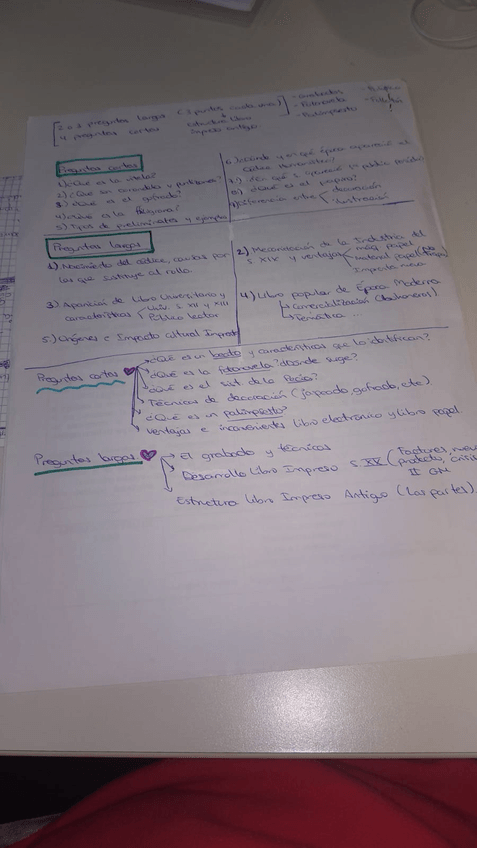 2 o 3 preguntas largas (3 puntos cada una)
4 preguntas cortas
Estructura Libro
Impreso antiguo
- Grabados
- Fotonovela
- Palimpsesto
Preguntas cortas
1) ¿Qué es la vitela?
2) ¿Qué son
3) ¿Qué es el grabado?
4) ¿Qué es la filigrana?
5) Tipos de preliminares y ejemplos
6) ¿Cuándo y en qué época aparecen el
7) ¿En qué S aparecen
8) ¿Qué es el papiro?
9) Diferencia entre decoración
ilustración
Preguntas largas
1) Nacimiento del códice, causas por
las que sustituye al rollo.
2) Mecanización de la Industria del
S XIX y ventajas
máq papel
Material papel
Imprenta nueva
3) Aparición de Libro Universitario y
características
Univ. S XII y XIII
Público lector
4) Libro popular de Época Moderna
Comercialización
Temática ...
5) Orígenes e Impacto Cultural Imprenta
Preguntas cortas
¿Qué es un boceto y características que lo identifican?
¿Qué es la fotonovela? ¿dónde surge?
¿Qué es el
Técnicas de decoración (jaspeado, gofrado, etc)
¿Qué es un palimpsesto?
Ventajas e inconvenientes Libro electrónico y libro papel
Preguntas largas
El grabado y técnicas
Desarrollo Libro Impreso S. XX (Factores, nuevos
productos, crisis
II GM
Estructura Libro Impreso Antiguo (Las partes)